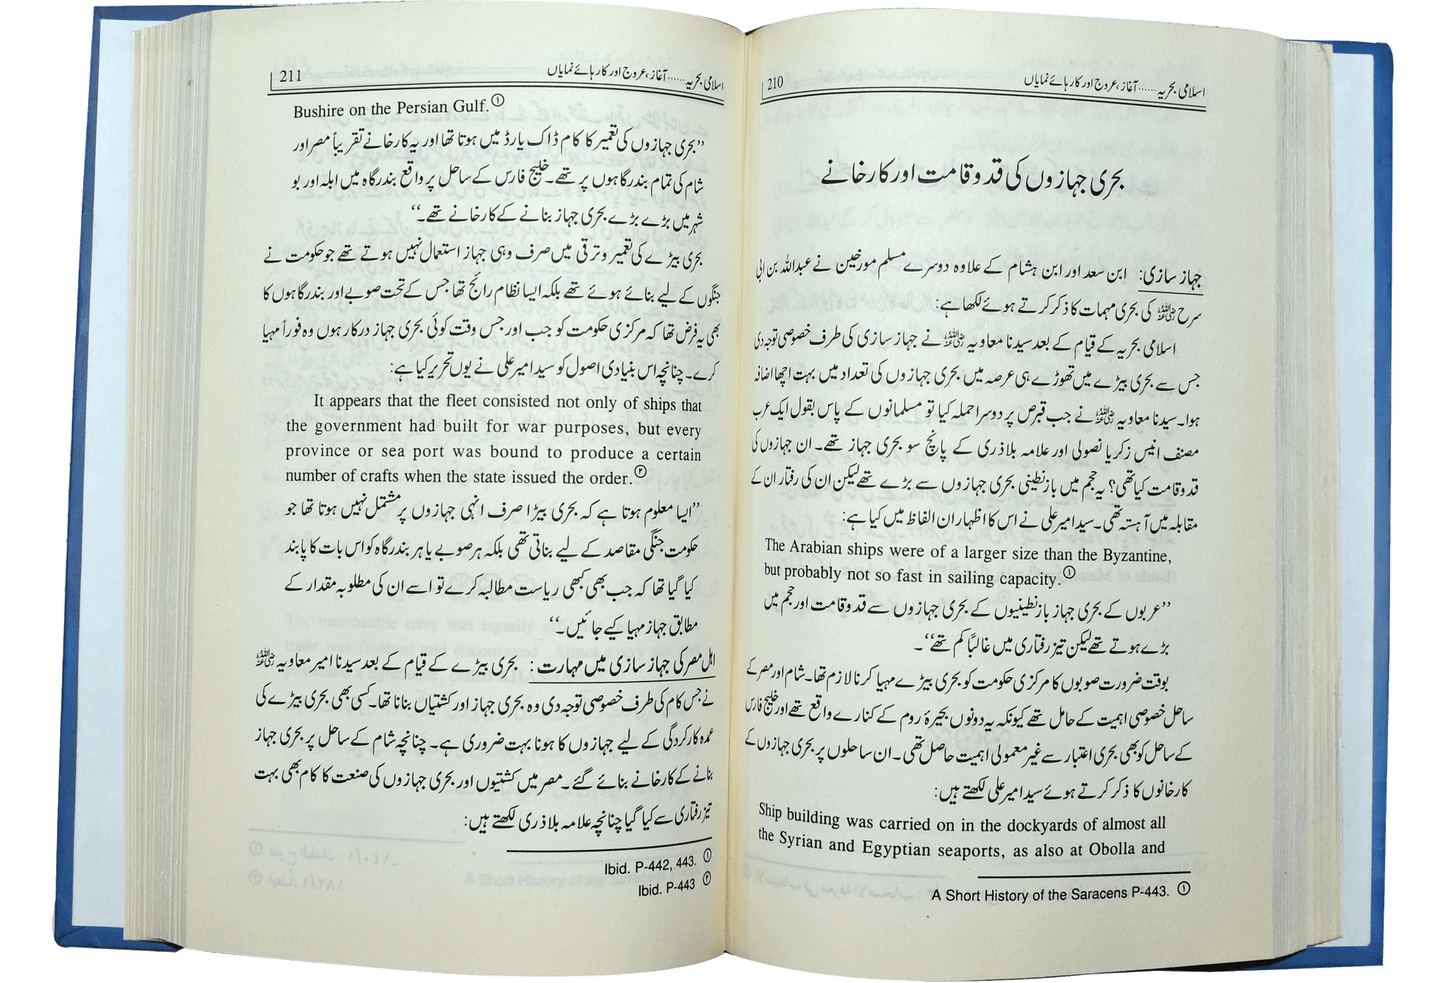 210
اسلامی بحریہ ...... آغاز، عروج اور کارہائے نمایاں
بحری جہازوں کی قد و قامت اور کارخانے
جہاز سازی: ابن سعد اور ابن ہشام کے علاوہ دوسرے مسلم مورخین نے عبداللہ بن ابی
سرح رضی اللہ عنہ کی بحری مہمات کا ذکر کرتے ہوئے لکھا ہے:
اسلامی بحریہ کے قیام کے بعد سیدنا معاویہ رضی اللہ عنہ نے جہاز سازی کی طرف خصوصی توجہ دی
جس سے بحری بیڑے میں تھوڑے ہی عرصہ میں بحری جہازوں کی تعداد میں بہت اچھا اضافہ
ہوا۔ سیدنا معاویہ رضی اللہ عنہ نے جب قبرص پر دوسرا حملہ کیا تو مسلمانوں کے پاس بقول ایک عرب
مصنف انیس زکریا نصولی اور علامہ بلاذری کے پانچ سو بحری جہاز تھے۔ ان جہازوں کی
قد و قامت کیا تھی؟ یہ حجم میں بازنطینی بحری جہازوں سے بڑے تھے لیکن ان کی رفتار ان کے
مقابلہ میں آہستہ تھی۔ سید امیر علی نے اس کا اظہار ان الفاظ میں کیا ہے:
The Arabian ships were of a larger size than the Byzantine,
but probably not so fast in sailing capacity.①
”عربوں کے بحری جہاز بازنطینیوں کے بحری جہازوں سے قد و قامت اور حجم میں
بڑے ہوتے تھے لیکن تیز رفتاری میں غالباً کم تھے“۔
بوقت ضرورت صوبوں کا مرکزی حکومت کو بحری بیڑے مہیا کرنا لازم تھا۔ شام اور مصر کے
ساحل خصوصی اہمیت کے حامل تھے کیونکہ یہ دونوں بحیرۂ روم کے کنارے واقع تھے اور خلیج فارس
کے ساحل کو بھی بحری اعتبار سے غیر معمولی اہمیت حاصل تھی۔ ان ساحلوں پر بحری جہازوں کے
کارخانوں کا ذکر کرتے ہوئے سید امیر علی لکھتے ہیں:
Ship building was carried on in the dockyards of almost all
the Syrian and Egyptian seaports, as also at Obolla and
A Short History of the Saracens P-443. ①
211
اسلامی بحریہ ...... آغاز، عروج اور کارہائے نمایاں
Bushire on the Persian Gulf.①
”بحری جہازوں کی تعمیر کا کام ڈاک یارڈ میں ہوتا تھا اور یہ کارخانے تقریباً مصر اور
شام کی تمام بندرگاہوں پر تھے۔ خلیج فارس کے ساحل پر واقع بندرگاہ میں ابلہ اور بو
شہر میں بڑے بڑے بحری جہاز بنانے کے کارخانے تھے۔“
بحری بیڑے کی تعمیر و ترقی میں صرف وہی جہاز استعمال نہیں ہوتے تھے جو حکومت نے
جنگوں کے لیے بنائے ہوئے تھے بلکہ ایسا نظام رائج تھا جس کے تحت صوبے اور بندرگاہوں کا
بھی یہ فرض تھا کہ مرکزی حکومت کو جب اور جس وقت کوئی بحری جہاز درکار ہوں وہ فوراً مہیا
کرے۔ چنانچہ اس بنیادی اصول کو سید امیر علی نے یوں تحریر کیا ہے:
It appears that the fleet consisted not only of ships that
the government had built for war purposes, but every
province or sea port was bound to produce a certain
number of crafts when the state issued the order.②
”ایسا معلوم ہوتا ہے کہ بحری بیڑا صرف انہی جہازوں پر مشتمل نہیں ہوتا تھا جو
حکومت جنگی مقاصد کے لیے بناتی تھی بلکہ ہر صوبے یا ہر بندرگاہ کو اس بات کا پابند
کیا گیا تھا کہ جب بھی کبھی ریاست مطالبہ کرے تو اسے ان کی مطلوبہ مقدار کے
مطابق جہاز مہیا کیے جائیں۔“
اہل مصر کی جہاز سازی میں مہارت: بحری بیڑے کے قیام کے بعد سیدنا امیر معاویہ رضی اللہ عنہ
نے جس کام کی طرف خصوصی توجہ دی وہ بحری جہاز اور کشتیاں بنانا تھا۔ کسی بھی بحری بیڑے کی
عمدہ کارکردگی کے لیے جہازوں کا ہونا بہت ضروری ہے۔ چنانچہ شام کے ساحل پر بحری جہاز
بنانے کے کارخانے بنائے گئے۔ مصر میں کشتیوں اور بحری جہازوں کی صنعت کا کام بھی بہت
تیز رفتاری سے کیا گیا چنانچہ علامہ بلاذری لکھتے ہیں:
Ibid. P-442, 443. ①
Ibid. P-443 ②